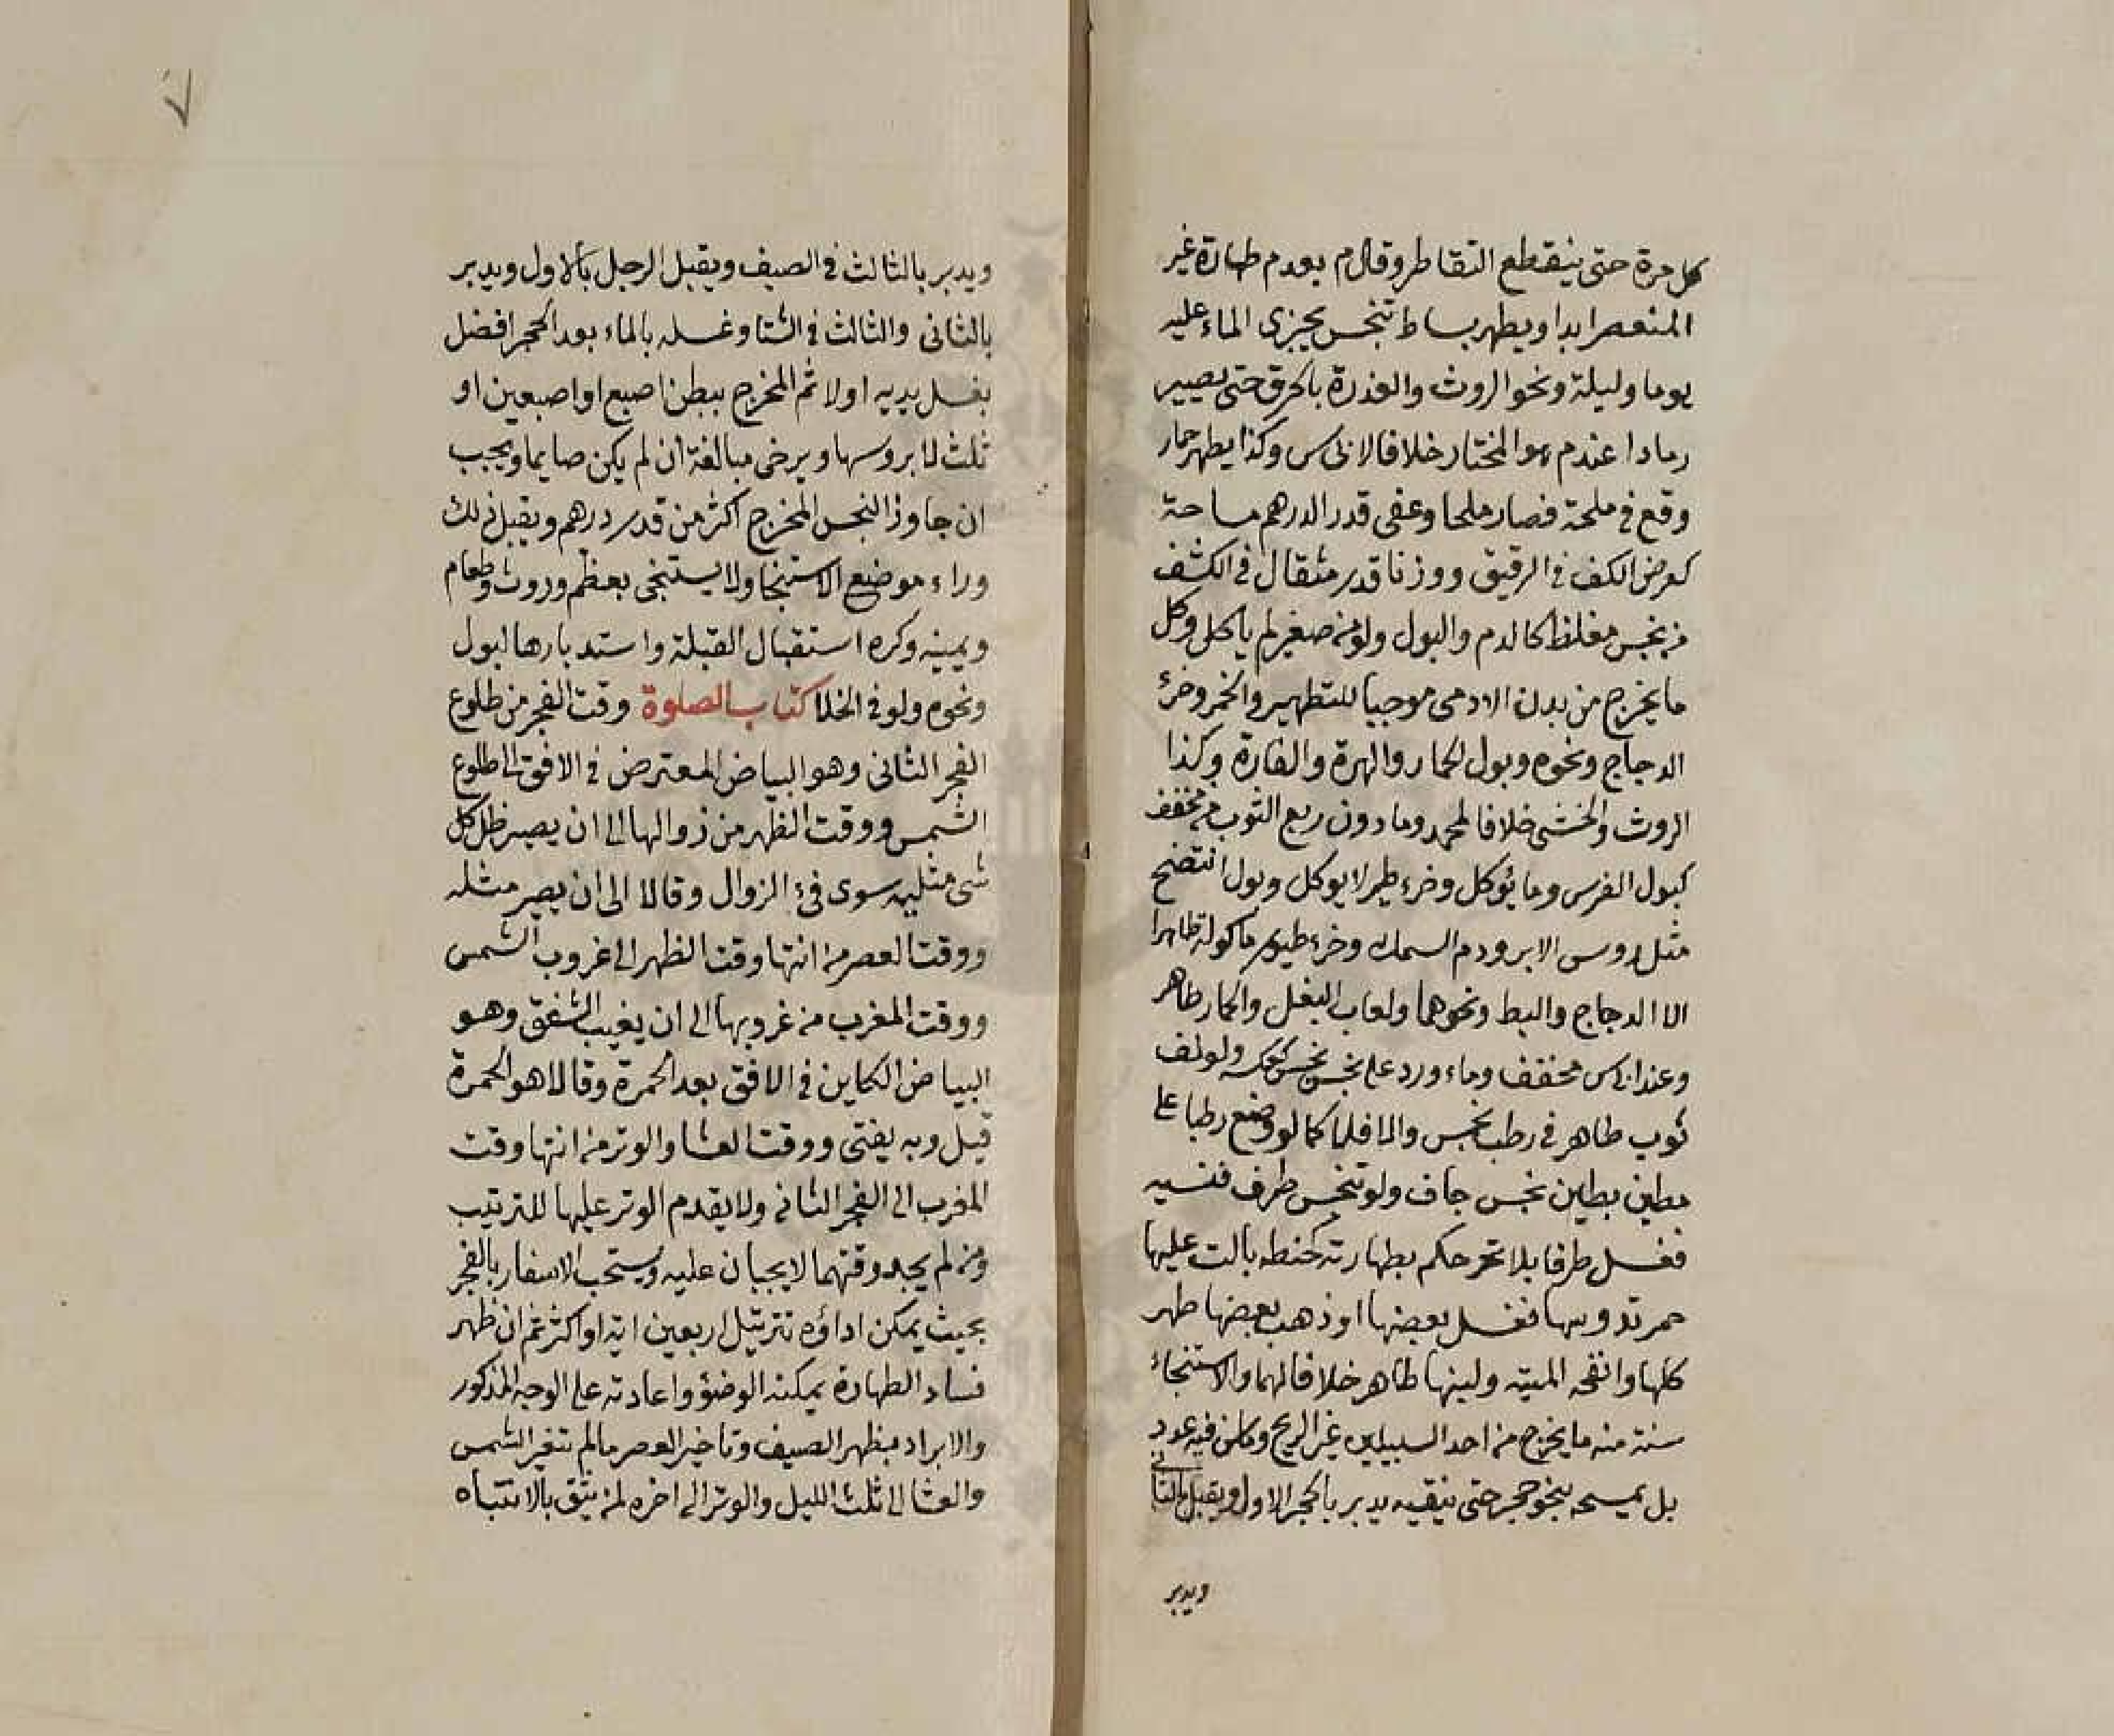 كل مرة حتى ينقطع التقاطر وقال م بعدم طهارة غير
المنعصر ابدا ويطهر بساط تنجس يجرى الماء عليه
يوما وليلة ونحو الروث والعذرة بالحرق حتى يصير
رمادا عند م هو المختار خلافا لابى س وكذا يطهر حمار
وقع في ملحة فصار ملحا وعفى قدر الدرهم مساحة
كعرض الكف في الرقيق ووزنا قدر مثقال في الكثف
من نجس مغلظ كالدم والبول ولو من صغير لم يأكل وكل
ما يخرج من بدن الادمى موجبا للتطهير والخمر وخرء
الدجاج ونحوه وبول الحمار والهرة والفارة وكذا
الروث والخثى خلافا لمحمد وما دون ربع الثوب من مخفف
كبول الفرس وما يؤكل وخرء طير لا يوكل وبول انتضح
مثل روس الابر ودم السمك وخرء طيور ماكولة طاهر
الا الدجاج والبط ونحوهما ولعاب البغل والحمار طاهر
وعند ابى س مخفف وماء ورد على نجس نجس كعكسه ولو لف
ثوب طاهر في رطب نجس والا فلا كما لو وضع رطبا على
مطين بطين نجس جاف ولو تنجس طرف فنسيه
فغسل طرفا بلا تحر حكم بطهارته كحنطه بالت عليها
حمر تدوسها فغسل بعضها او ذهب بعضها طهر
كلها وانفحه الميته ولبنها طاهر خلافا لهما والاستنجاء
سنة منه ما يخرج من احد السبيلين غير الريح وما سن فيه عدد
بل يمسحه بنحو حجر حتى ينقيه يدبر بالحجر الاول ويقبل بالثانى
ويدبر
ويدبر بالثالث في الصيف ويقبل الرجل بالاول ويدبر
بالثانى والثالث في الشتا وغسله بالماء بعد الحجر افضل
بغسل يديه اولا ثم المخرج ببطن اصبع او اصبعين او
ثلث لا بروسها ويرخى مبالغة ان لم يكن صايما ويجب
ان جاوز النجس المخرج اكثر من قدر درهم ويقبل ذلك
وراء موضع الاستنجا ولا يستنجى بعظم وروث وطعام
ويمينه وكره استقبال القبلة واستدبارها لبول
ونحوه ولو في الخلا كتاب الصلوة وقت الفجر من طلوع
الفجر الثانى وهو البياض المعترض في الافق الى طلوع
الشمس ووقت الظهر من زوالها الى ان يصير ظل كل
شى مثليه سوى فئ الزوال وقالا الى ان يصير مثله
ووقت العصر من انتها وقت الظهر الى غروب الشمس
ووقت المغرب من غروبها الى ان يغيب الشفق وهو
البياض الكاين في الافق بعد الحمرة وقالا هو الحمرة
قيل وبه يفتى ووقت العشا والوتر من انتها وقت
المغرب الى الفجر الثانى ولا يقدم الوتر عليها للترتيب
ومن لم يجد وقتهما لا يجبان عليه ويستحب الاسفار بالفجر
بحيث يمكن اداؤه بترتيل اربعين اية او اكثر ثم ان ظهر
فساد الطهارة يمكنه الوضؤ واعادته على الوجه المذكور
والابراد بظهر الصيف وتاخير العصر ما لم تتغير الشمس
والعشا الى ثلث الليل والوتر الى اخره لمن يثق بالانتباه